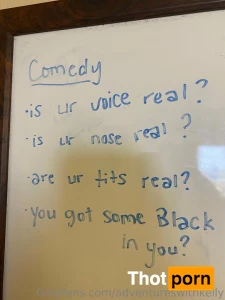 Comedy
·is ur voice real?
·is ur nose real?
·are ur tits real?
·you got some Black
in you?
Thot porn
onlyfans.com/adventureswithkelly